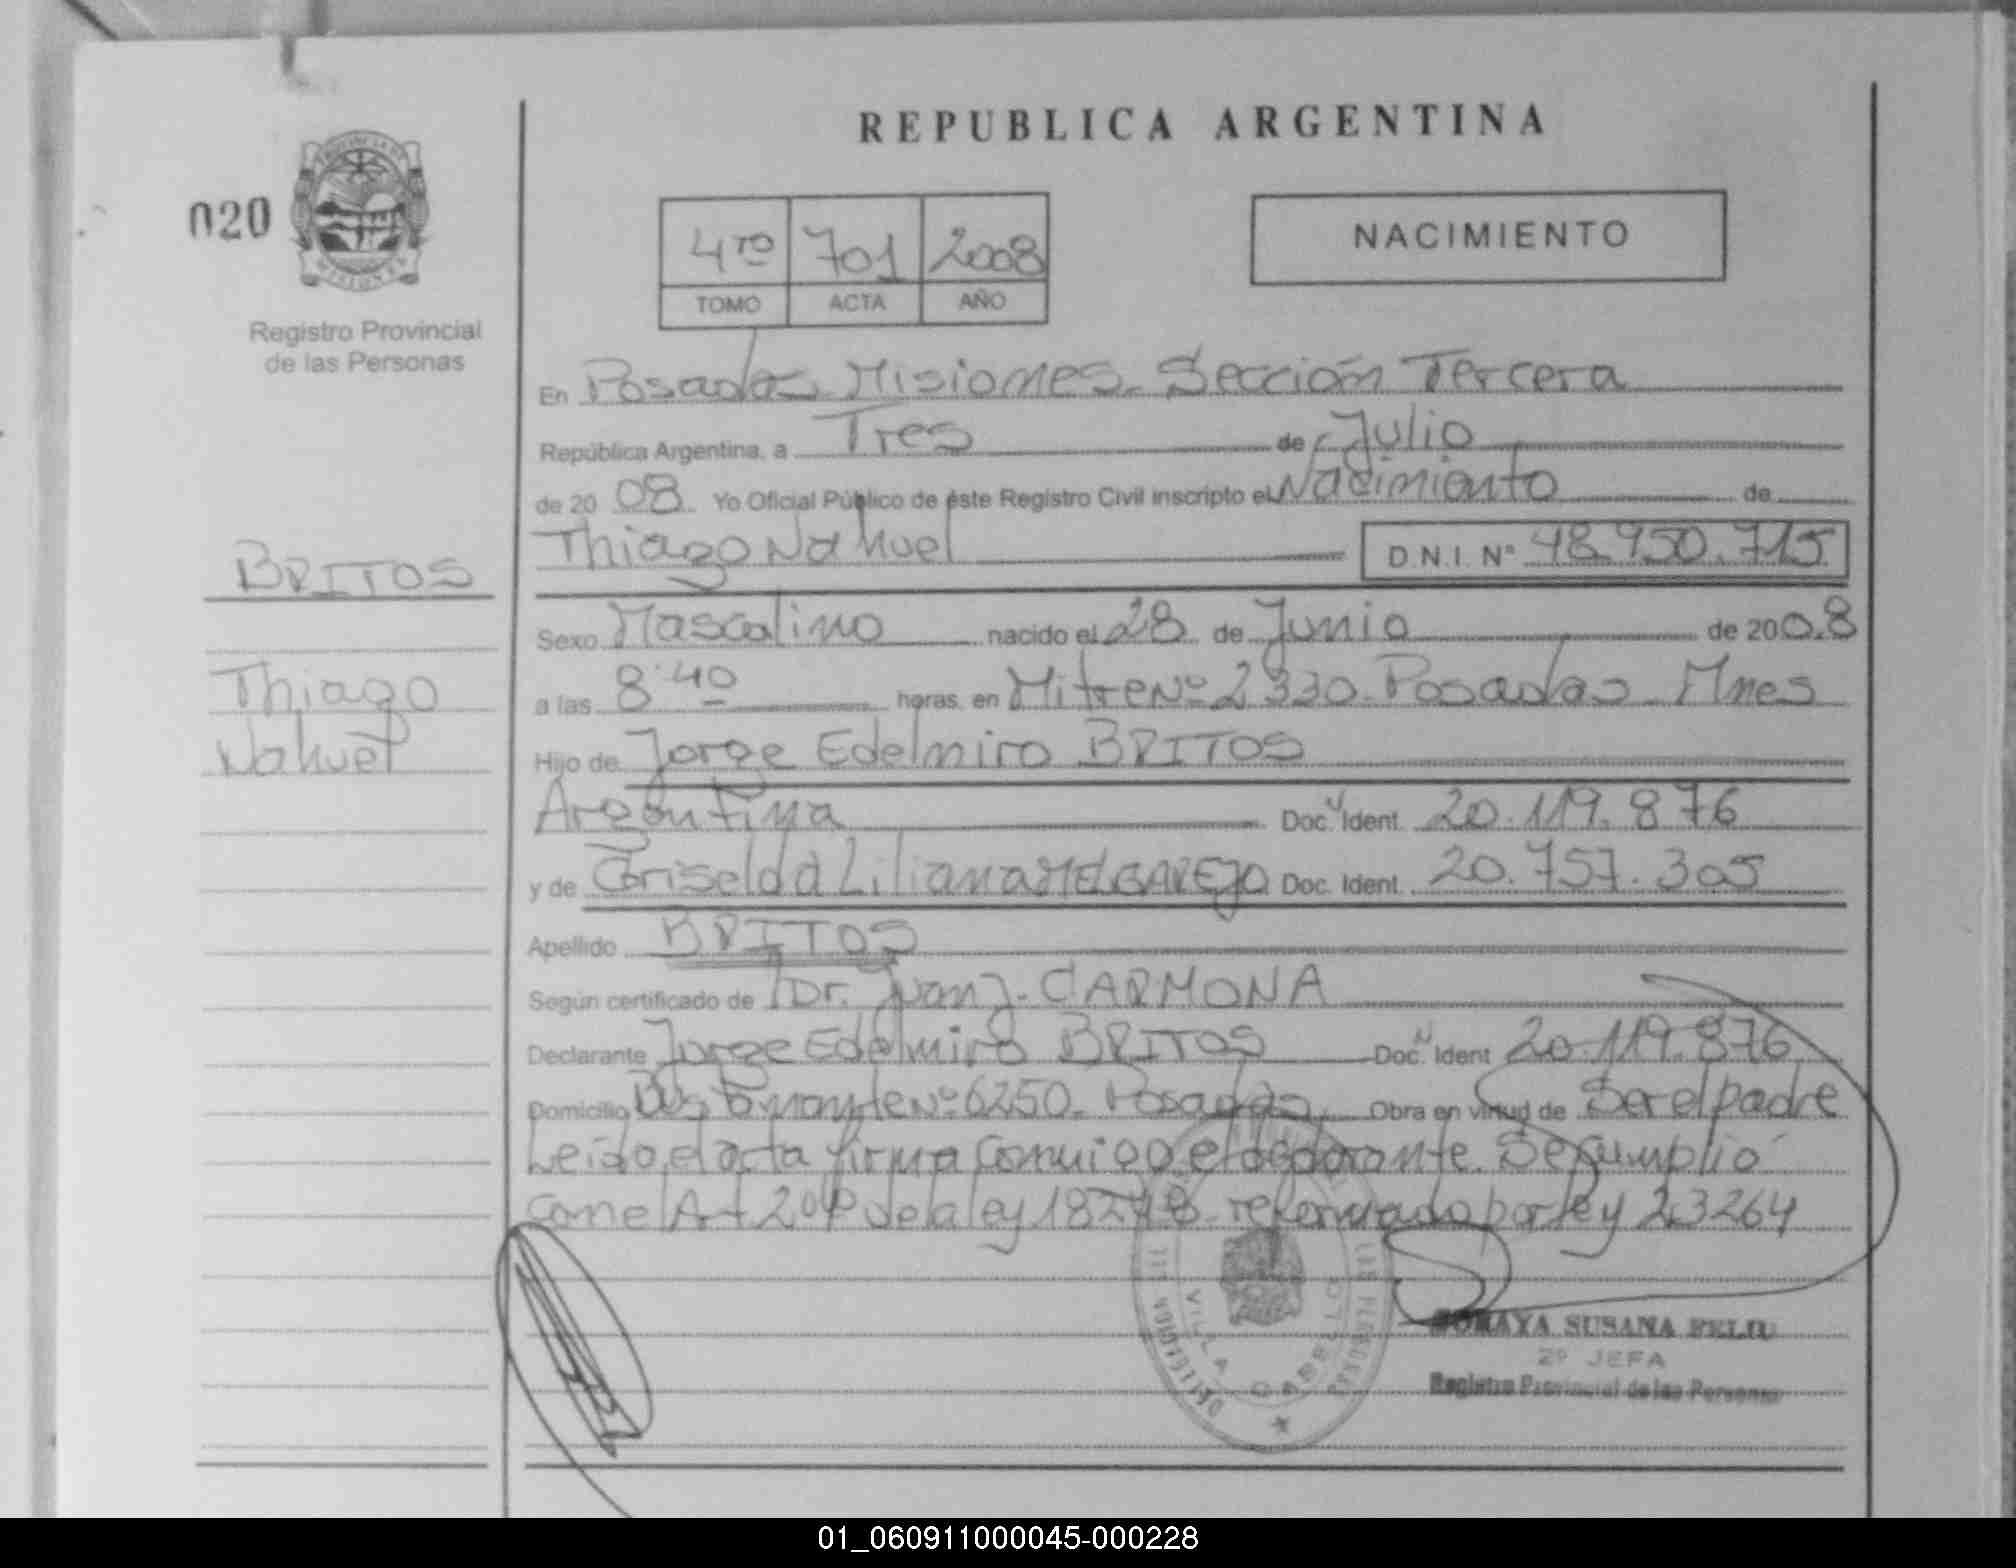 REPUBLICA ARGENTINA
020
4TO 701 2008
TOMO ACTA AÑO
NACIMIENTO
Registro Provincial
de las Personas
En Posadas Misiones. Sección Tercera
República Argentina, a Tres de Julio
de 2008. Yo Oficial Público de éste Registro Civil inscripto el Nacimiento de
Thiago Nahuel D.N.I. Nº 48.950.715
BRITOS
Sexo Masculino nacido el 28 de Junio de 2008
Thiago
a las 8:40 horas, en Mitre Nº 2330. Posadas Mnes
Nahuel
Hijo de Jorge Edelmiro BRITOS
Argentina Doc. Ident. 20.119.876
y de Griselda Liliana MELGAREJO Doc. Ident. 20.757.305
Apellido BRITOS
Según certificado de Dr. Juan J. CARMONA
Declarante Jorge Edelmiro BRITOS Doc. Ident 20.119.876
Domicilio Nº 6250. Posadas Obra en virtud de Ser el padre
Leido el acta firma conmigo el declarante. Se cumplio
con el Art 2º de la ley 18248 reformada por ley 23264
VILLA CABELLO
SORAYA SUSANA FELIU
2º JEFA
Registro Provincial de las Personas
01_060911000045-000228